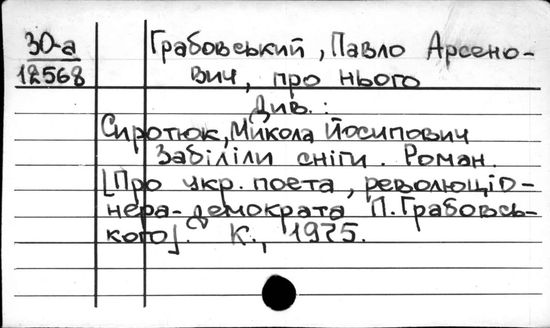 30-а
12568
Грабовський, Павло Арсено-
вич, про нього
Див.:
Сиротюк, Микола Йосипович
Забіліли сніги. Роман.
[Про укр. поета, революціо-
нера-демократа П. Грабовсь-
кого]. К., 1975.